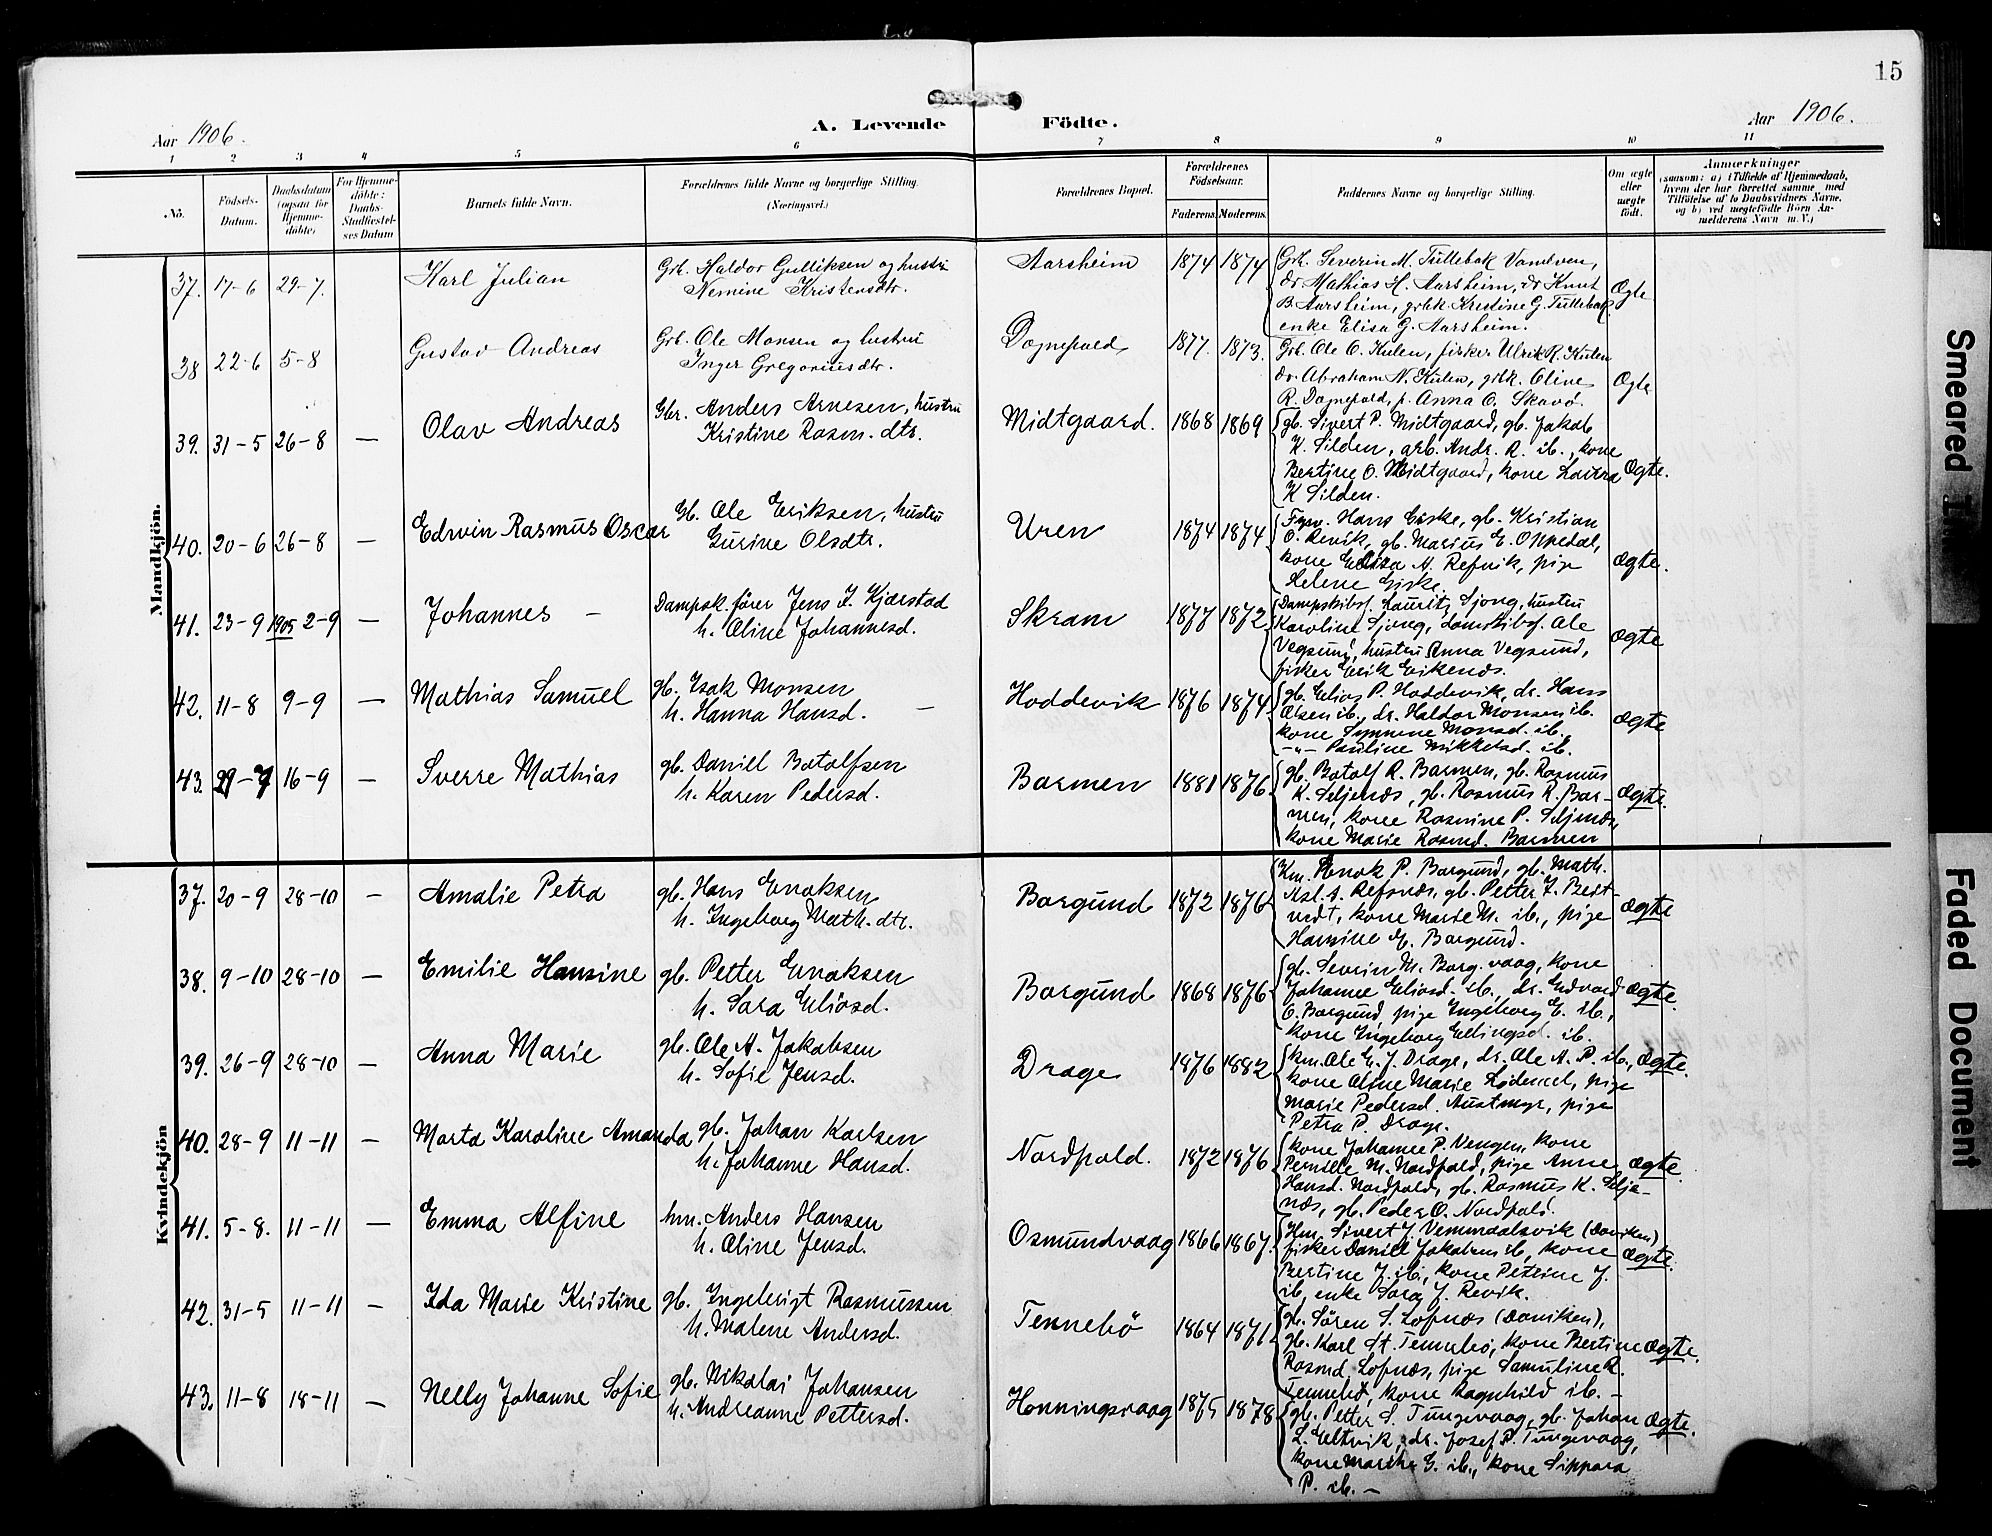 15
Aar 1906.
A. Levende Födte.
Aar 1906.
1 2 3 4 5 6 7 8 9 10 11
No.
Födsels-Datum.
Daabsdatum (ogsaa for Hjemmedöbte)
For Hjemmedöbte: Daabs-Stadfæstelses Datum
Barnets fulde Navn.
Forældrenes fulde Navne og borgerlige Stilling. (Næringsvei.)
Forældrenes Bopæl.
Forældrenes Födselsaar.
Faderens. Moderens.
Faddernes Navne og borgerlige Stilling.
Om ægte eller uægte födt.
Anmærkninger
(saasom: a) i Tilfælde af Hjemmedaab, hvem der har forrettet samme, med Tilföielse af to Daabsvidners Navne, og b) ved uægtefödte Börn Anmelderens Navn m. V.)
Mandkjön.
37. 17-6 29-7. Karl Julian
Grb. Haldor Gulliksen og hustru
Nemine Kristensdtr.
Aarsheim 1874 1874
Grb. Severin M. Tullebak Vandven,
dr Mathias H. Aarsheim, dr Knut
B. Aarsheim, grbk Kristine G. Tullebak,
enke Elisa G. Aarsheim.
Ægte
38 22-6 5-8 Gustav Andreas
Grb. Ole Monsen og hustru
Inger Gregoriusdtr.
Dognefald 1877. 1873.
Grb. Ole O. Kulen, fisker Ulrik R. Kulen
dr. Abraham N. Kulen, grbk. Oline
R. Dognefald, p. Anna O. Skavö.
Ægte
39. 31-5 26-8 — Olav Andreas
Gbr. Anders Arnesen, hustru
Kristine Rasm. dtr.
Midtgaard. 1868 1869
gb. Sivert P. Midtgaard, gb. Jakob
K. Silden, arb. Andr. R. ib., kone
Bertine O. Midtgaard, kone Laura
K Silden.
Ægte.
40. 20-6 26-8 — Edvin Rasmus Oscar
Gb. Ole Eriksen, hustru
Gurine Olsdtr.
Uren 1874 1874
Fyrv. Hans Giske, gb. Kristian
O. Revik, gb. Marius E. Oppedal,
kone Eliza A. Refvik, pige
Helene Giske.
Ægte.
41. 23-9 1905 2-9 — Johannes —
Dampsk.fører Jens J. Kjærstad
h. Oline Johannesd.
Skram 1877 1872
Dampskibsf. Lauritz Sjong, hustru
Karoline Sjong, Ole
Vegsund, hustru Anna Vegsund,
fisker Erik Eikenæs.
Ægte
42. 11-8 9-9 — Mathias Samuel
gb. Isak Monsen
h. Hanna Hansd. —
Hoddevik 1876 1874
gb. Elias P. Hoddevik, dr. Hans
Olsen ib., dr. Haldor Monsen ib.
kone Synnene Monsd. ib.
-"- Pauline Mikkelsd. ib.
Ægte
43. 29-7 16-9 — Sverre Mathias
gb. Daniel Botolfsen
h. Karen Pedersd.
Barmen 1881 1876
gb. Botolf R. Barmen, gb. Rasmus
K. Seljenæs, gb. Rasmus R. Bar-
men, kone Rasmine P. Seljenæs,
kone Marie Rasmd. Barmen
Ægte.
Kvindekjön
37. 20-9 28-10 — Amalie Petra
gb. Hans Enoksen
h. Ingeborg Math. dtr.
Borgund 1872 1876
Km. Enok P. Borgund, gb. Math.
Asl. A. Refsnæs, gb. Petter J. Berst-
vedt, kone Marie M. ib., pige
Hansine E. Borgund.
Ægte
38. 9-10 28-10 — Emilie Hansine
gb. Petter Enoksen
h. Sara Eliasd.
Borgund 1868 1876
gb. Severin M. Borg.vaag, kone
Johanne Eliasd. ib., dr. Edvard
E. Borgund, pige Ingeborg E. ib.,
kone Ingeborg Ellingsd. ib.
Ægte
39. 26-9 28-10 — Anna Marie
gb. Ole A. Jakobsen
h. Sofie Jensd.
Drage 1876 1882
km. Ole E. J. Drage, dr. Ole A. P. ib.,
kone Oline Marie Lødemel, pige
Marie Pedersd. Austmyr, pige
Petra P. Drage.
Ægte.
40. 28-9 11-11 — Marta Karoline Amanda
gb. Johan Karlsen
h. Johanne Hansd.
Nordpold. 1872 1876
kone Johanne P. Vengen, kone
Pernille M. Nordpold, pige Anne
Hansd. Nordpold, gb. Rasmus K. Selje-
næs, gb. Peder O. Nordpold.
Ægte.
41. 5-8. 11-11 — Emma Alfine
hm. Anders Hansen
h. Oline Jensd.
Osmundvaag 1866 1867.
Hm. Sivert J. Vemmelsvik (Daviken)
fisker Daniel Jakobsen ib., kone
Bertine J. ib., kone Petrine J.
ib, enke Sara J. Revik.
Ægte.
42. 31-5 11-11 — Ida Marie Kristine
gb. Ingebrigt Rasmussen
h. Malene Andersd.
Tennebö 1864 1871
gb. Søren S. Lofnæs (Daviken),
gb. Karl St. Tennebö, kone Bertine
Rasmd. Lofnæs, pige Samuline R.
Tennebö, kone Ragnhild ib. —
Ægte.
43. 11-8 18-11 — Nelly Johanne Sofie
gb. Nikolai Johansen
h. Andreanne Pettersd.
Honningsvaag 1875 1878
gb. Petter S. Tungevaag, gb. Johan
L. Eltvik, dr. Josef P. Tungevaag,
kone Marthe G. ib., kone Sippora
P. ib. —
Ægte.
Smeared
Faded Document